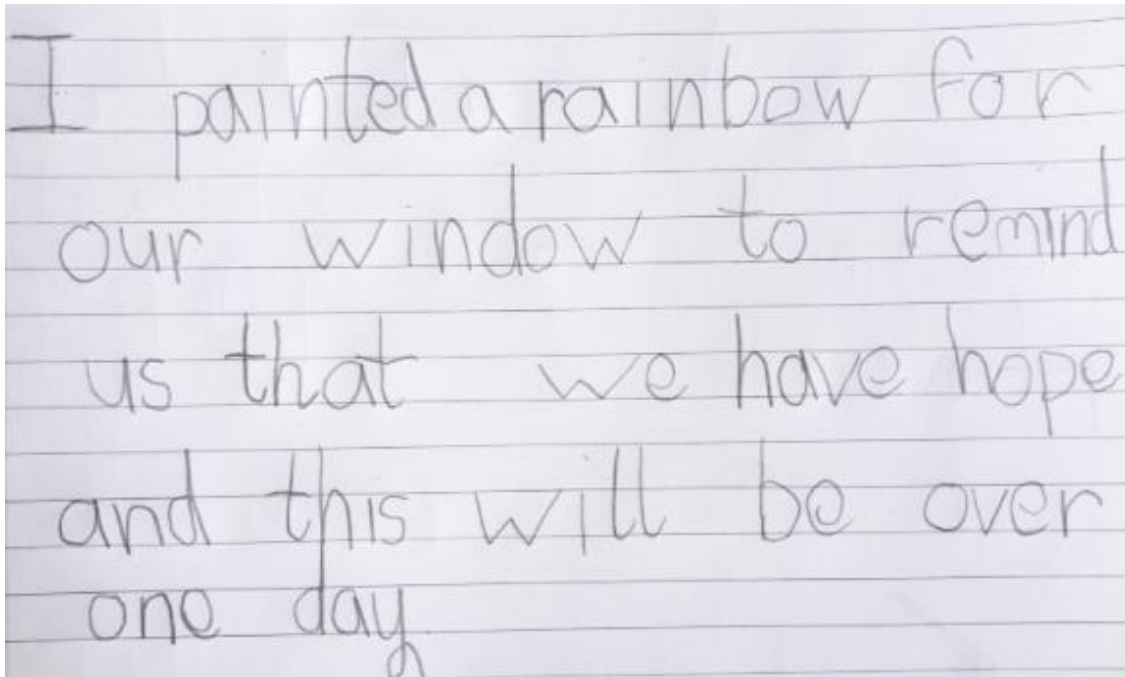 I painted a rainbow for
our window to remind
us that we have hope
and this will be over
one day